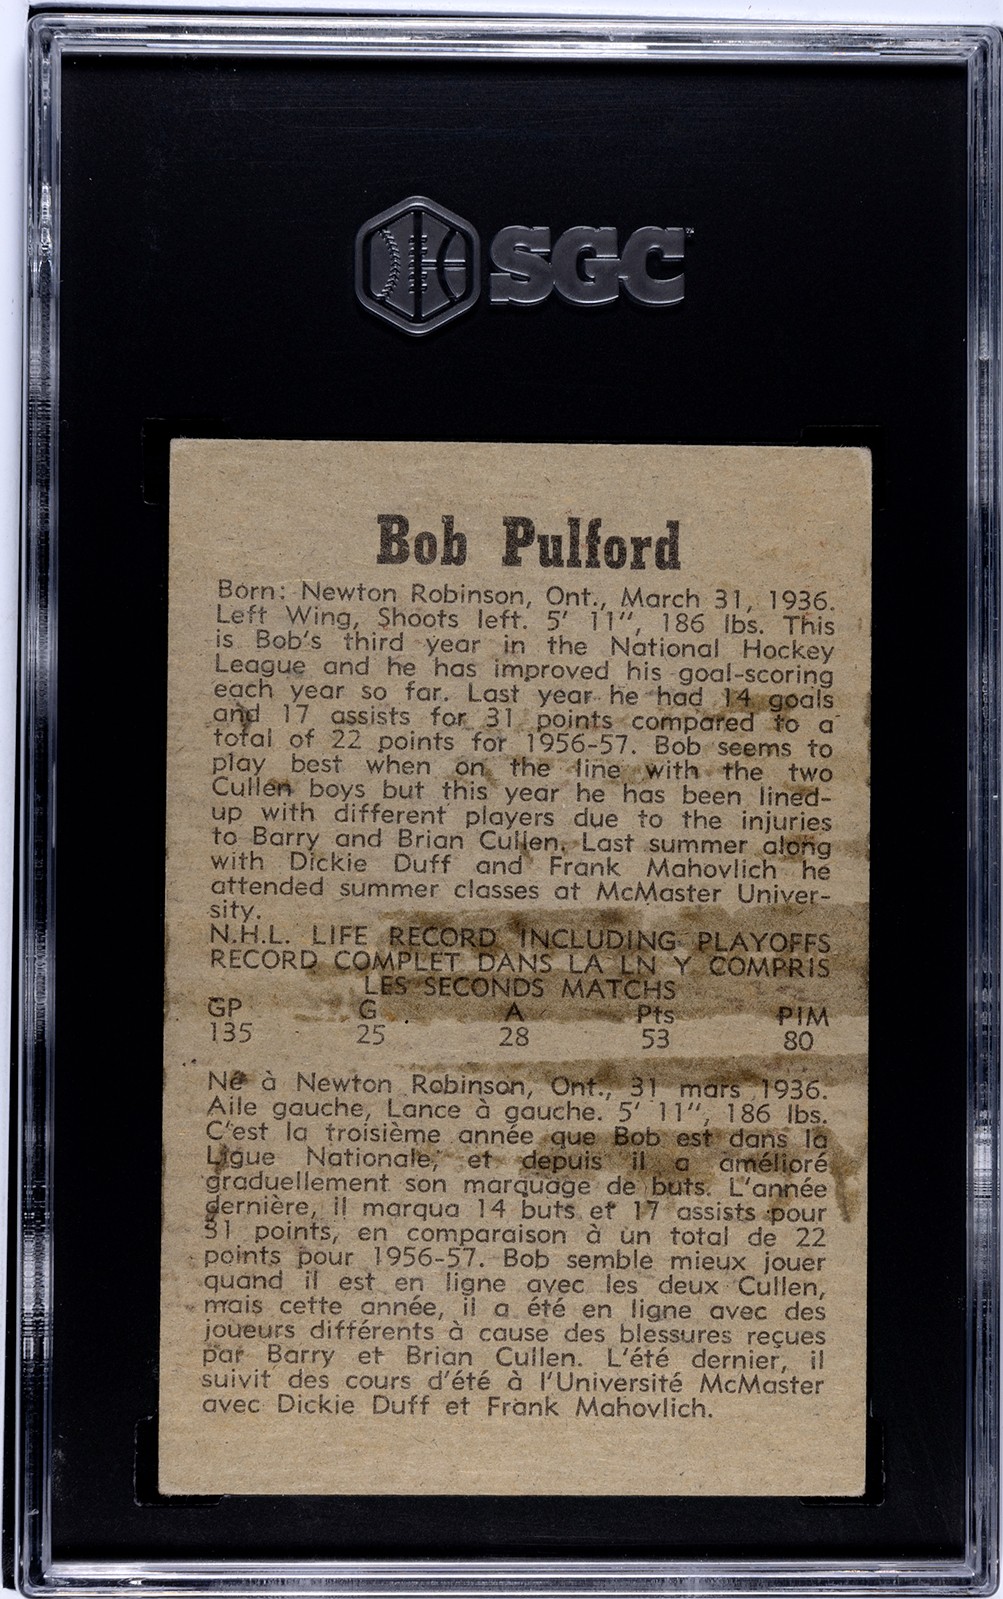 SGC
Bob Pulford
Born: Newton Robinson, Ont., March 31, 1936.
Left Wing, Shoots left. 5' 11", 186 lbs. This
is Bob's third year in the National Hockey
League and he has improved his goal-scoring
each year so far. Last year he had 14 goals
and 17 assists for 31 points compared to a
total of 22 points for 1956-57. Bob seems to
play best when on the line with the two
Cullen boys but this year he has been lined-
up with different players due to the injuries
to Barry and Brian Cullen. Last summer along
with Dickie Duff and Frank Mahovlich he
attended summer classes at McMaster Univer-
sity.
N.H.L. LIFE RECORD INCLUDING PLAYOFFS
RECORD COMPLET DANS LA LN Y COMPRIS
LES SECONDS MATCHS
GP G A Pts PIM
135 25 28 53 80
Né à Newton Robinson, Ont., 31 mars 1936.
Aile gauche, Lance à gauche. 5' 11", 186 lbs.
C'est la troisième année que Bob est dans la
Ligue Nationale, et depuis il a amélioré
graduellement son marquage de buts. L'année
dernière, il marqua 14 buts et 17 assists pour
31 points, en comparaison à un total de 22
points pour 1956-57. Bob semble mieux jouer
quand il est en ligne avec les deux Cullen,
mais cette année, il a été en ligne avec des
joueurs différents à cause des blessures reçues
par Barry et Brian Cullen. L'été dernier, il
suivit des cours d'été à l'Université McMaster
avec Dickie Duff et Frank Mahovlich.